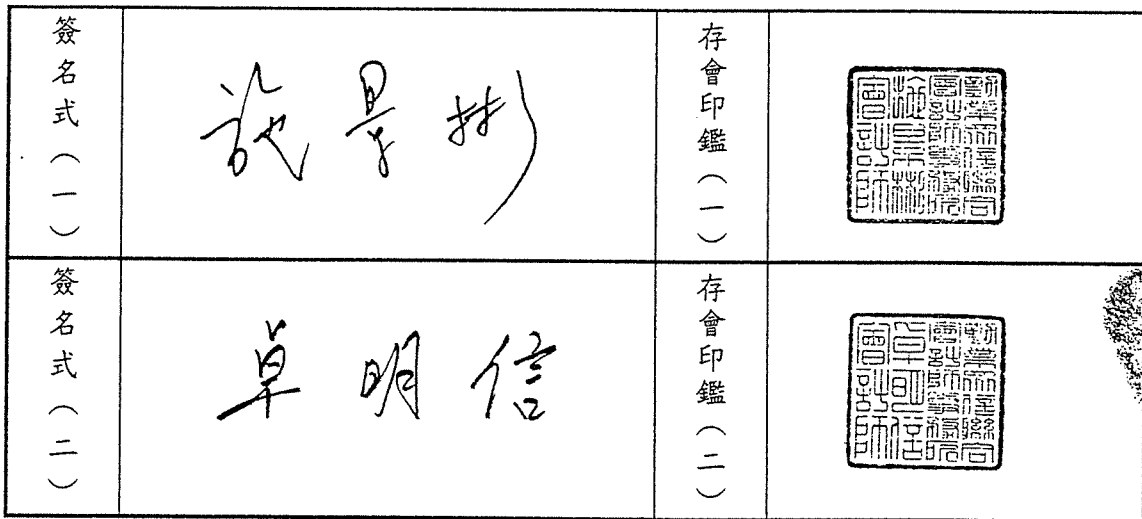 簽名式（一）
施景彬
存會印鑑（一）
勤業眾信聯合
會計師事務所
施景彬
會計師
簽名式（二）
卓明信
存會印鑑（二）
勤業眾信聯合
會計師事務所
卓明信
會計師